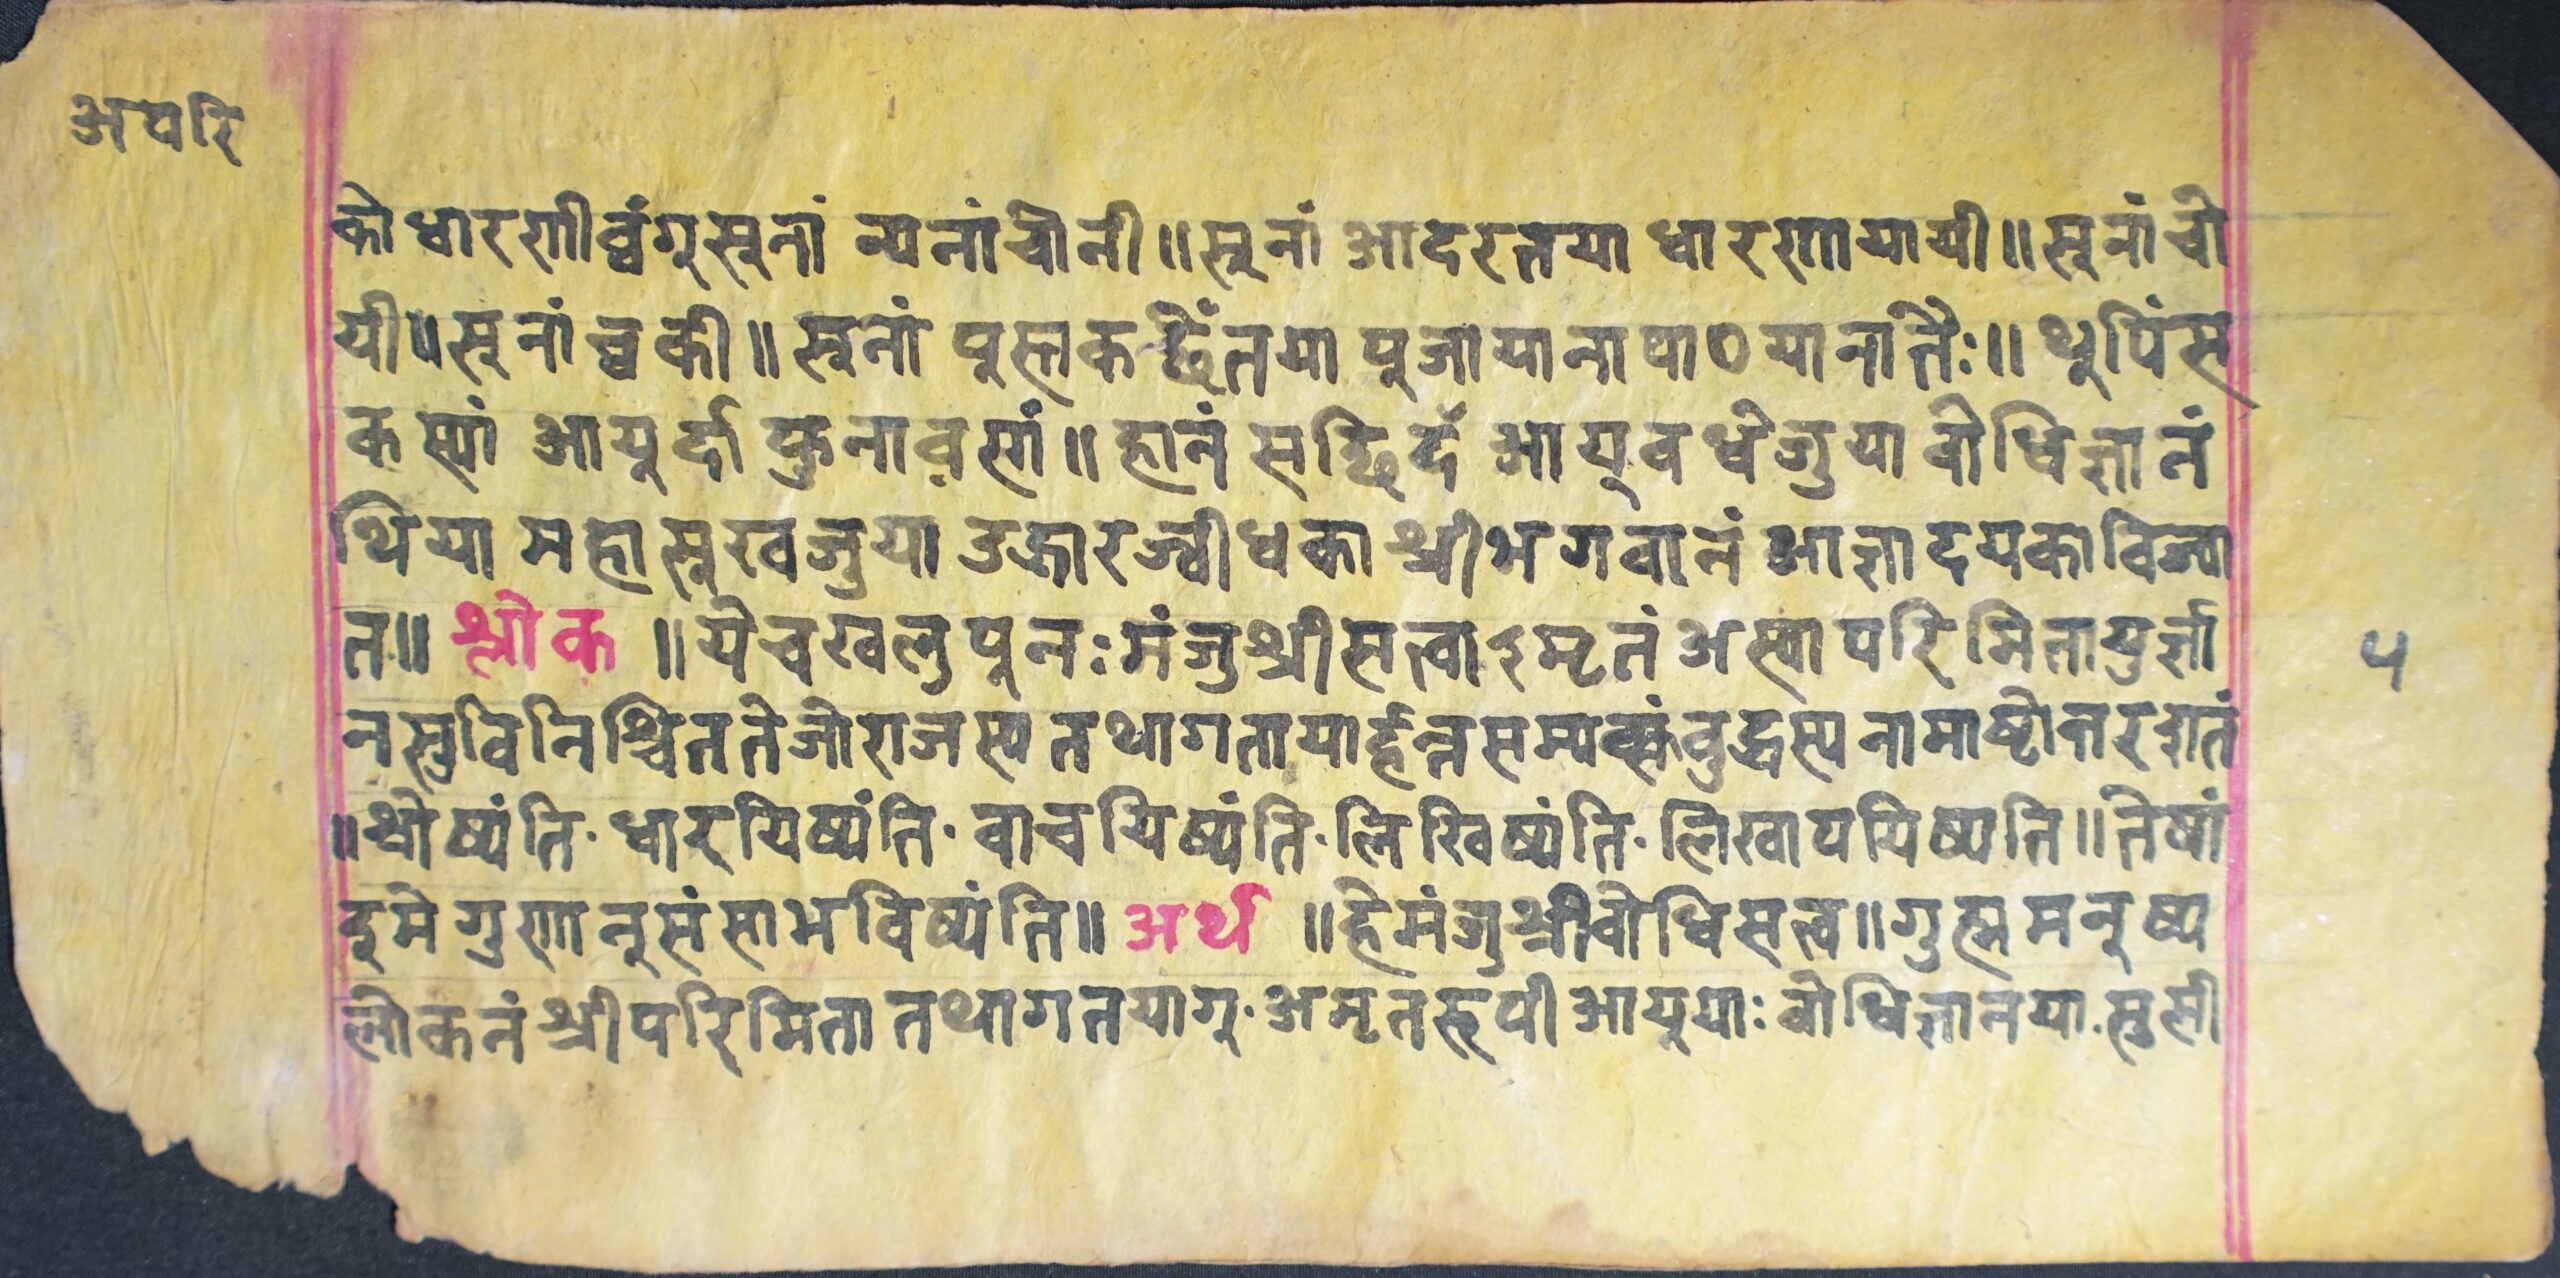 अपरि
को धारणीब्वंगु सुनां न्यनां चोनी॥ सुनां आदरतया धारणायायी॥ सुनां चो
यी॥ सुनां ब्वकी॥ सुनां पुस्तक छेँतया पुजायाना पाठयानातैः॥ थुपिंस
कस्यां आयुर्दा फुनावसां॥ हानं सछिदँ आयुवधेजुया बोधिज्ञानं
थिया महासुखजुया उद्धारज्वीधका श्रीभगवानं आज्ञादयकाविज्या
त॥ श्लोक ॥ ये च खलु पुनः मंजुश्रीसत्वाऽमृतं अस्यापरिमितायुर्ज्ञा
नसुविनिश्चिततेजोराजस्य तथागतायार्हन्नसम्यक्संबुद्धस्य नामाष्टोत्तरशतं
॥ श्रोष्यंति· धारयिष्यंति· वाचयिष्यंति· लिखिष्यंति· लिखापयिष्यति॥ तेषां
दुमे गुणानुसंसा भविष्यंति॥ अर्थ ॥ हे मंजुश्रीबोधिसत्व॥ गुह्म मनुष्य
लोकनं श्रीपरिमिता तथागतयागु· अमृतरूपी आयुयाः बोधिज्ञानया· सुसी
५